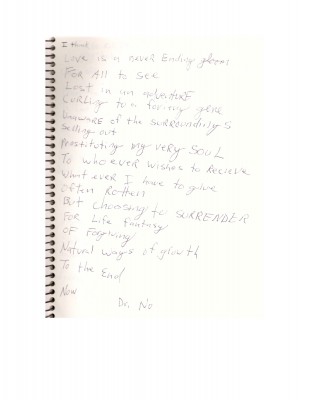 I think
Love is a never Ending gloom
For All to see
Lost in an adventurE
Curling to a
Unaware of the surroundings
Selling out
Prostituting my very SOUL
To who ever wishes to Recieve
What ever I have to give
Often Rotten
But choosing to SURRENDER
For Life fantasy
OF Forgiving
Natural ways of growth
To the End
Now
Dr. No